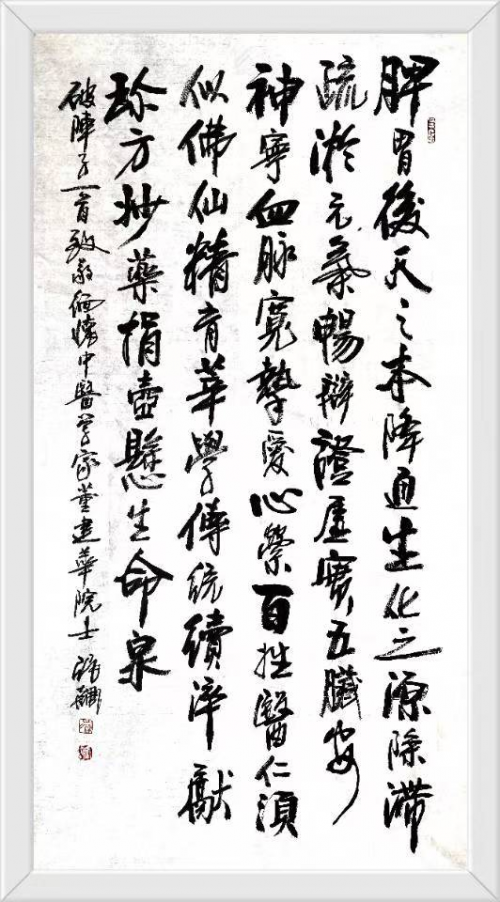 脾胃後天之本降通生化之源除滯
疏淤元氣暢辯證虛實五臟安
神寧血脉寬摯愛心縈百姓醫仁須
似佛仙精育莘學傳統續淬獻
珍方妙藥捐壺懸生命泉
破陣子一首致敬緬懷中醫學家董建華院士